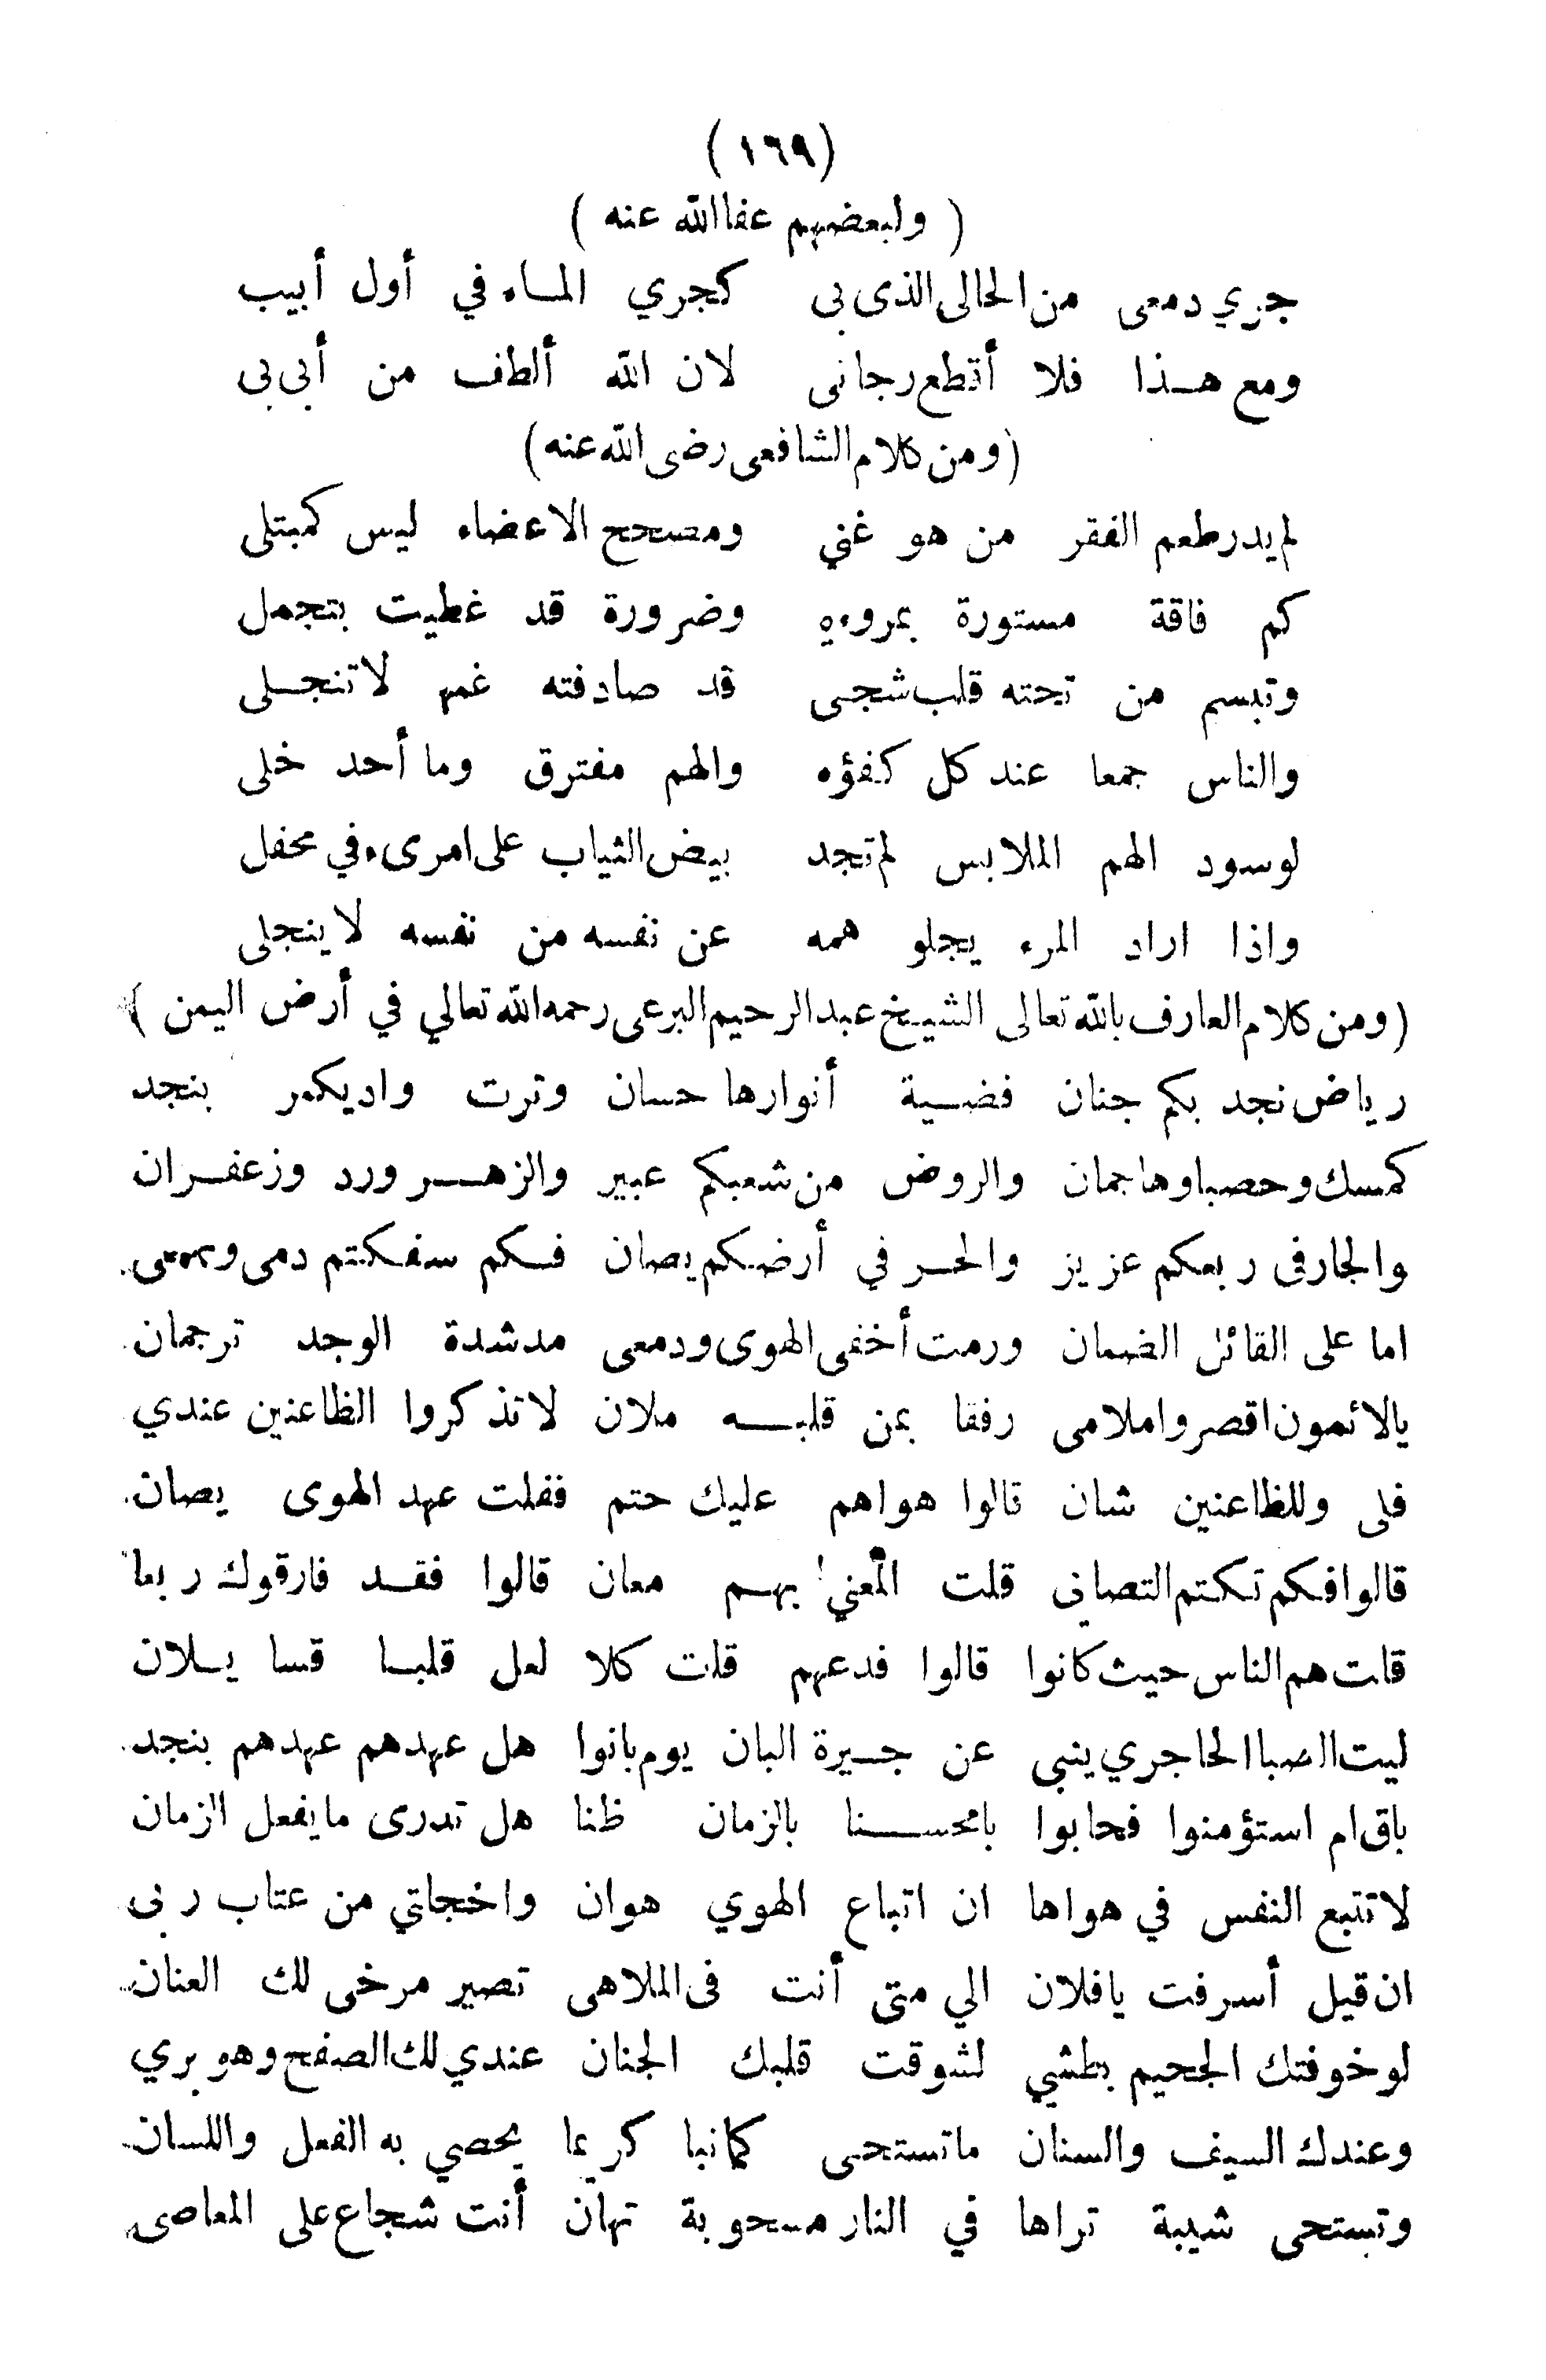 (١٦٩)
( ولبعضهم عفا الله عنه )
جري دمعى من الحالى الذى بى كجري الماء في أول أبيب
ومع هذا فلا أقطع رجائى لان الله ألطف من أبى بى
(ومن كلام الشافعى رضى الله عنه)
لم يدر طعم الفقر من هو غني ومصحح الاعضاء ليس كمبتلى
كم فاقة مستورة بمروءة وضرورة قد غطيت بتجمل
وتبسم من تحته قلب شجى قد صادفته غمه لا تنجلى
والناس جمعا عند كل كفؤه والهم مفترق وما أحد خلى
لو سود الهم الملابس لم تجد بيض الثياب على امرىء في محفل
واذا اراد المرء يجلو همه عن نفسه من نفسه لا ينجلى
(ومن كلام العارف بالله تعالى الشيخ عبد الرحيم البرعى رحمه الله تعالي في أرض اليمن )
رياض نجد بكم جنان فضية أنوارها حسان وترت واديكم بنجد
كمسك وحصباوها جمان والروض من شعبكم عبير والزهر ورد وزعفران
والجار فى ربعكم عزيز والحر في أرضكم يصان فكم سفكتم دمى
اما على القائل الضمان ورمت أخفى الهوى ودمعى مد شدة الوجد ترجمان
يالائمون اقصروا ملامى رفقا بمن قلبه ملان لا تذكروا الظاعنين عندي
فلى وللظاعنين شان قالوا هواهم عليك حتم فقلت عهد الهوى يصان
قالوا فكم تكتم التصابى قلت المعني بهم معان قالوا فقد فارقوك ربعا
قلت هم الناس حيث كانوا قالوا فدعهم قلت كلا لعل قلبا قسا يلان
ليت الصبا الحاجري ينبى عن جيرة البان يوم بانوا هل عهدهم عهدهم بنجد
باق ام استؤمنوا فحابوا يا محسنا بالزمان ظنا هل تدرى ما يفعل الزمان
لا تتبع النفس في هواها ان اتباع الهوي هوان واخجلتي من عتاب ربى
ان قيل أسرفت يا فلان الي متى أنت فى الملاهى تصير مرخى لك العنان
لو خوفتك الجحيم بطشي لشوقت قلبك الجنان عندي لك الصفح وهو بري
وعندك السيف والسنان ما تستحى كما نبا كريما يحصي به الفعل واللسان
وتستحى شيبة تراها في النار مسحوبة تهان أنت شجاع على المعاصى